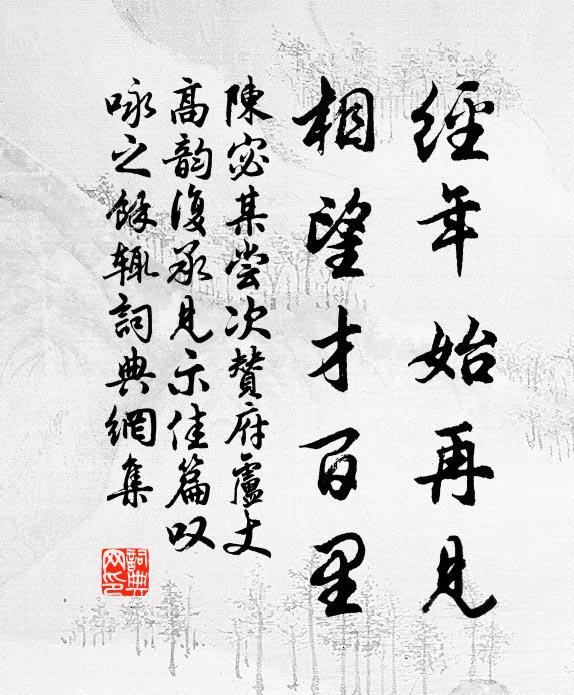 經年始再見
相望才百里
陳宓某嘗次贊府盧丈
高韵復承見示佳篇叹
咏之餘輒詞典網集
詞典網印